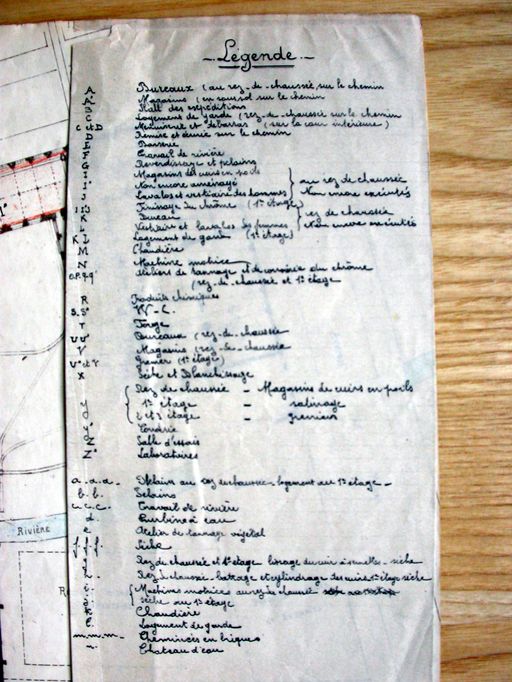 Légende
A Bureaux (au rez-de-chaussée sur le chemin
A' Magasins (en sous sol sur le chemin
B Hall des expéditions
Logement de garde (rez-de-chaussée sur le chemin
C et D Menuiserie et débarras (sur la cour intérieure)
Remise et écurie sur le chemin
E Basserie
F Travail de rivière
G Reverdissage et pelains
Magasins des cuirs en poils
Non encore aménagé
Lavabos et vestiaire des hommes
au rez de chaussée
Non encore exécutés
Finissage du chrome (1er étage)
Bureau
Vestiaire et lavabos des femmes
rez de chaussée
Non encore exécutés
K' Logement de garde (1er étage)
L Chaudière
M
N Machine motrice
O.P.Q.Q' Ateliers de tannage et de corroirie au chrome
(rez-de-chaussée et 1er étage
R Produits chimiques
S.S' W-C.
T Forge
U U' Bureaux (rez-de-chaussée
V Magasins (rez-de-chaussée
V' et V" Grenier (1er étage)
X Sèche et Blanchissage
Y
Rez de chaussée - Magasins de cuirs en poils
1er étage - salinage
2 et 3 étage - greniers
Y' Tonnerie
Z Salle d'essais
Z' Laboratoires
a.a.a. Séchoirs au rez de chaussée - logement au 1er étage -
b.b. Séchoirs
c.c.c. Travail de rivière
d. Turbines à eau
e Atelier de tannage végétal
f. f. f. Sèche
Rez de chaussée et 1er étage lissage du cuir à semelles - sèche
Rez de chaussée - battage et cylindrage des cuirs, 1er étage sèche
Machines motrices au rez de chaussée
sèche au 1er étage
Chaudière
Logement de garde
m.m.m. Cheminées en briques
n. Chateau d'eau
RIVIÈRE